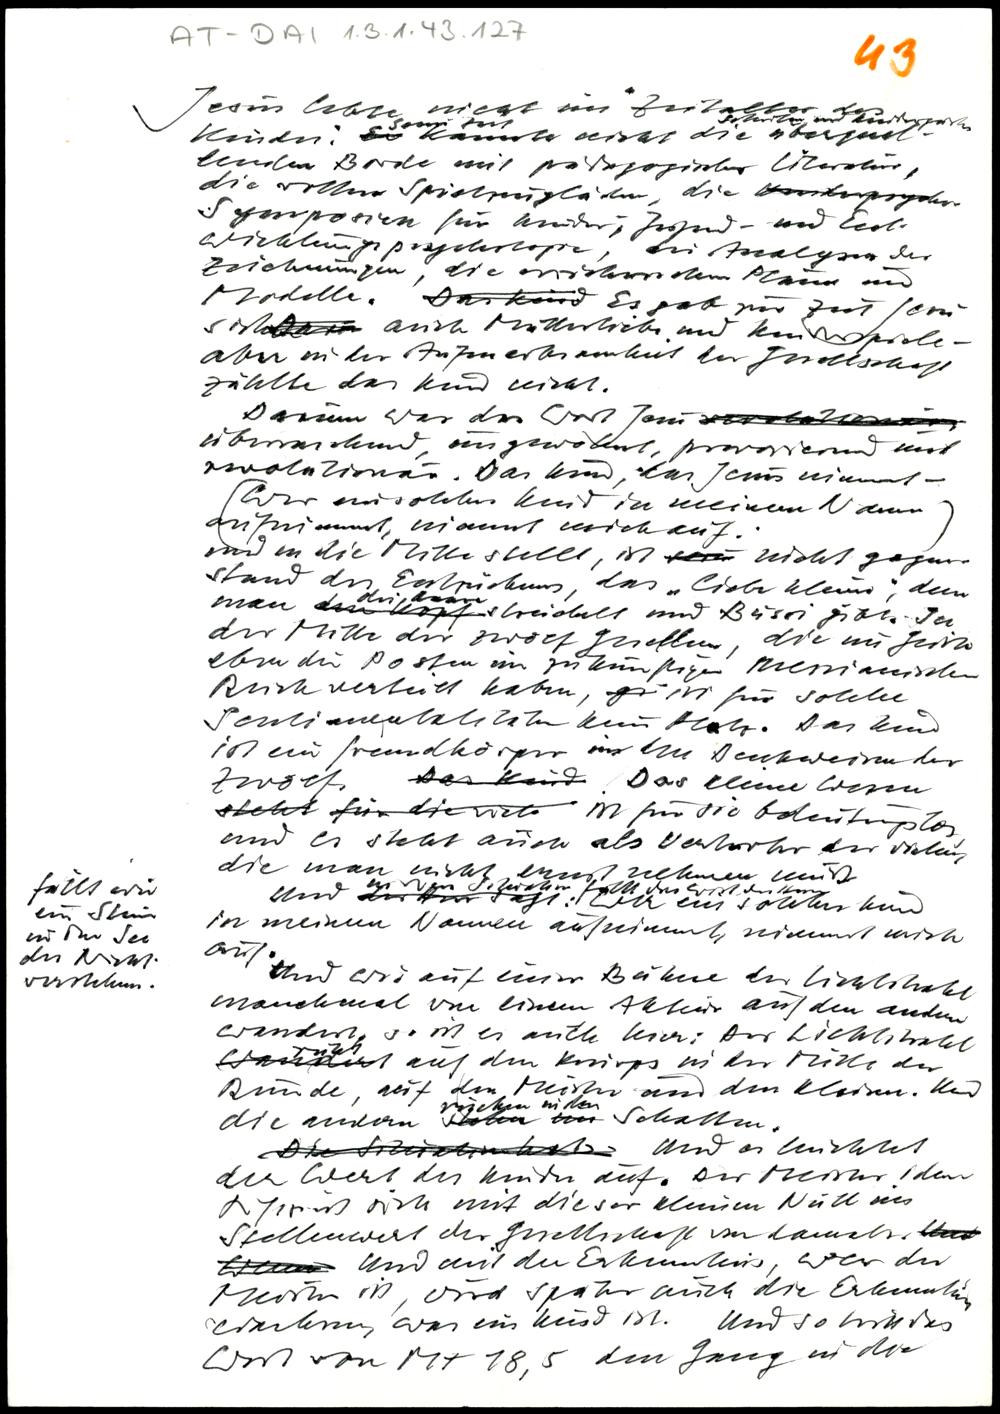 AT-DAI 1.3.1.43.127
43
Jesus lebte nicht im "Zeitalter des
Kindes". kannte nicht die überquel-
lenden Borde mit pädagogischer Literatur,
die vollen Spielzeugläden, die
Symposien für Kinder-, Jugend- und Ent-
wicklungspsychologie, die Analysen der
Zeichnungen, die erzieherischen Pläne und
Modelle. Das Kind Es gab zur Zeit Jesu
auch Mutterliebe und Kinderspiele -
aber in der Aufmerksamkeit der Gesellschaft
zählte das Kind nicht.
Darum war das Wort Jesu revolutionär
überraschend, ungewohnt, provozierend und
revolutionär. Das Kind, das Jesus nimmt -
(Wer ein solches Kind in meinem Namen
aufnimmt, nimmt mich auf.)
und in die Mitte stellt, ist nicht Gegen-
stand des Entzückens, das "liebe Kleine", dem
man den Kopf streichelt und Büssi gibt. In
der Mitte der zwölf Gesellen, die im Geiste
eben die Posten im zukünftigen Messianischen
Reich verteilt haben, ist für solche
Sentimentalitäten kein Platz. Das Kind
ist ein Fremdkörper im Denkweisen der
Zwölf. Das Kind Das kleine Wesen
steht für die viele ist für sie bedeutungslos,
und es steht auch als Vertreter der vielen,
die man nicht ernst nehmen muß
Und fällt das Wort des Herrn
: Wer ein solches Kind
in meinem Namen aufnimmt, nimmt mich
auf.
fällt wie
ein Stein
in den See
des Nicht-
verstehens.
Und wie auf einer Bühne der Lichtstrahl
manchmal von einem Akteur auf den andern
wandert, so ist es auch hier: Der Lichtstrahl
wandert auf den Knirps in der Mitte der
Runde, auf den Meister und den Kleinen. Und
rücken in den
die andern stehen im Schatten.
Und es leuchtet
der Wert des Kindes auf. Der Meister iden-
tifiziert sich mit dieser kleinen Null im
Stellenwert der Gesellschaft von damals. Und
Wenn Und mit der Erkenntnis, wer der
Meister ist, wird später auch die Erkenntnis
wachsen, was ein Kind ist. Und so tritt das
Wort von Mt 18,5 den Gang in die